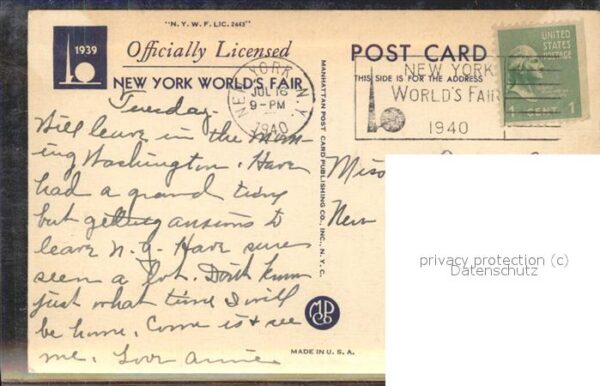 "N.Y.W.F. LIC. 2443"
1939
Officially Licensed
NEW YORK WORLD'S FAIR
POST CARD
THIS SIDE IS FOR THE ADDRESS
UNITED STATES POSTAGE
1 CENT 1
NEW YORK, N.Y.
JUL 16
9-PM
1940
NEW YORK
WORLD'S FAIR
1940
Tuesday.
Will leave in the morn
ing Washington. Have
had a grand time
but getting anxious to
leave N.Y. Have sure
seen a lot. Don't know
just what time I will
be home. Come in + see
me. Love Annie
Miss
New
MANHATTAN POST CARD PUBLISHING CO., INC., N.Y.C.
MADE IN U.S.A.
privacy protection (c)
Datenschutz